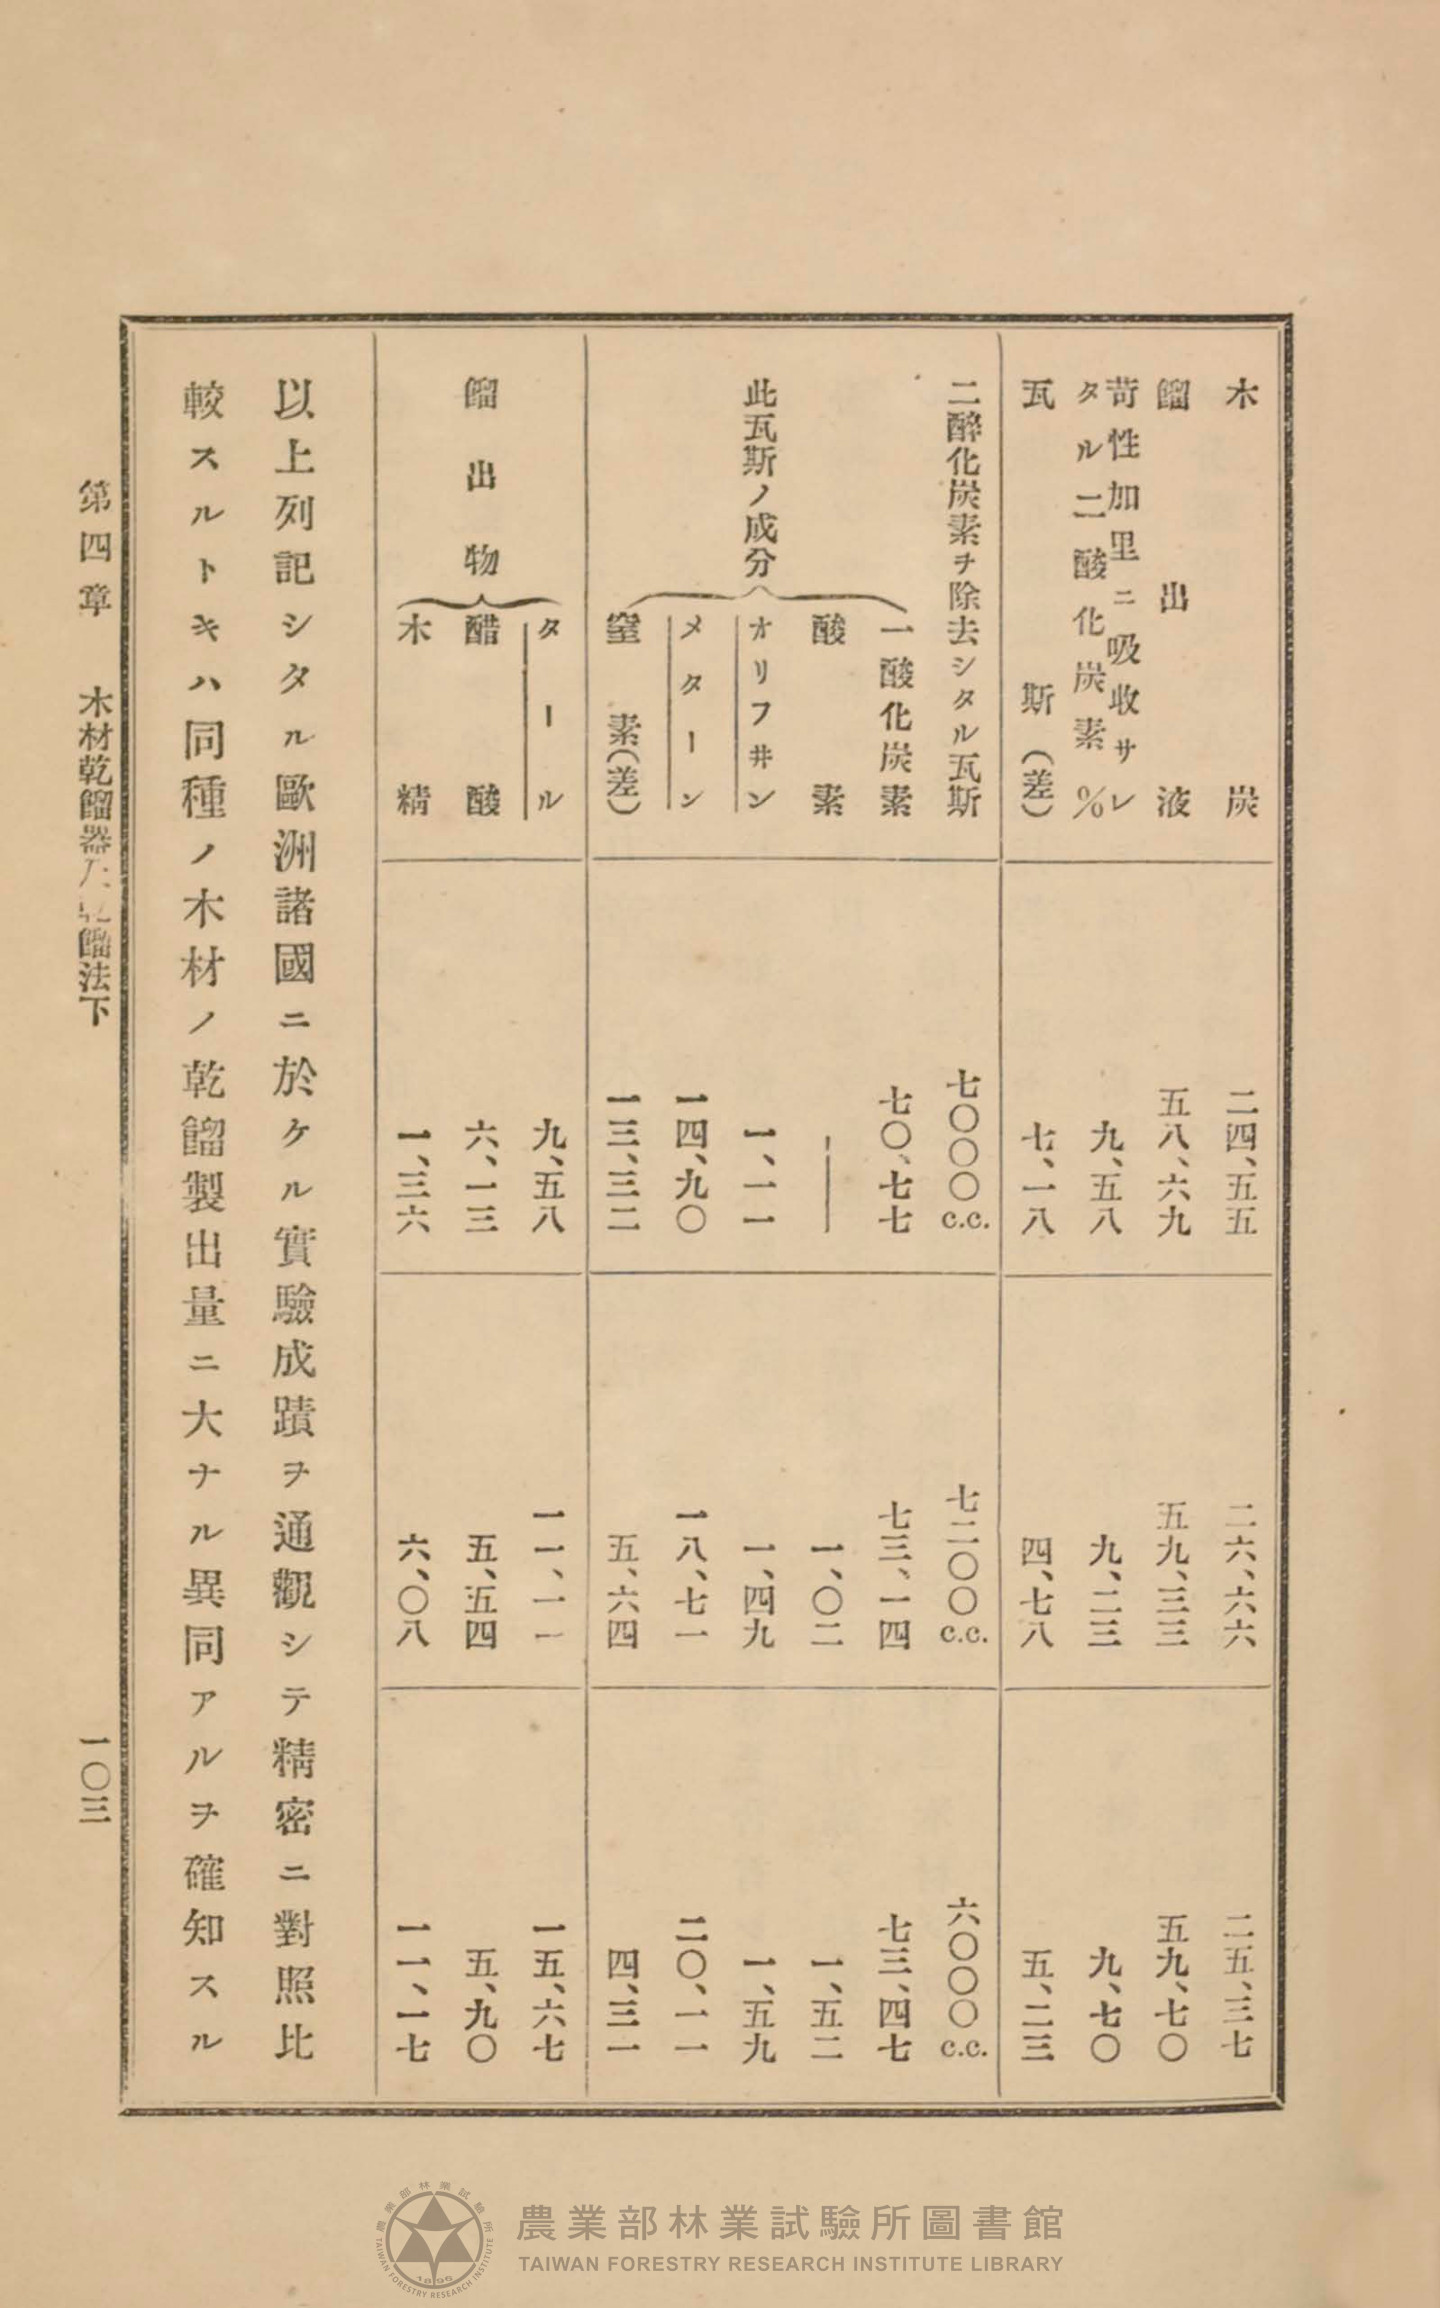 木炭 二四、五五 二六、六六 二五、三七
餾出液 五八、六九 五九、三三 五九、七〇
苛性加里ニ吸收サレ
タル二酸化炭素% 九、五八 九、二三 九、七〇
瓦斯(差) 七、一八 四、七八 五、二三
二酸化炭素ヲ除去シタル瓦斯 七〇〇〇c.c. 七二〇〇c.c. 六〇〇〇c.c.
此瓦斯ノ成分
一酸化炭素 七〇、七七 七三、一四 七三、四七
酸素 — 一、〇二 一、五二
オリフヰン 一、一一 一、四九 一、五九
メターン 一四、九〇 一八、七一 二〇、一一
窒素(差) 一三、三二 五、六四 四、三一
餾出物
タール 九、五八 一一、一一 一五、六七
醋酸 六、一三 五、五四 五、九〇
木精 一、三六 六、〇八 一一、一七
以上列記シタル歐洲諸國ニ於ケル實驗成蹟ヲ通觀シテ精密ニ對照比
較スルトキハ同種ノ木材ノ乾餾製出量ニ大ナル異同アルヲ確知スル
第四章 木材乾餾器 乾餾法下 一〇三
農業部林業試驗所圖書館
TAIWAN FORESTRY RESEARCH INSTITUTE LIBRARY
農業部林業試驗所
TAIWAN FORESTRY RESEARCH INSTITUTE
1896